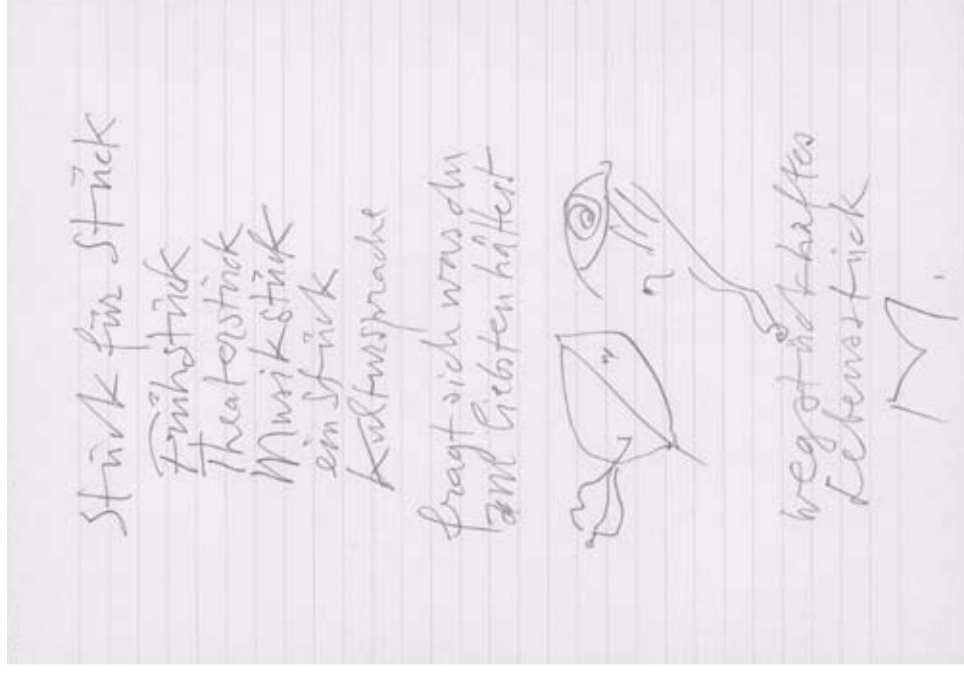 Stück für Stück
Frühstück
Theaterstück
Musikstück
ein Stück
Kultursprache
fragt sich was du
am liebsten hättest
wegstückhaftes
Lebensstück
M.